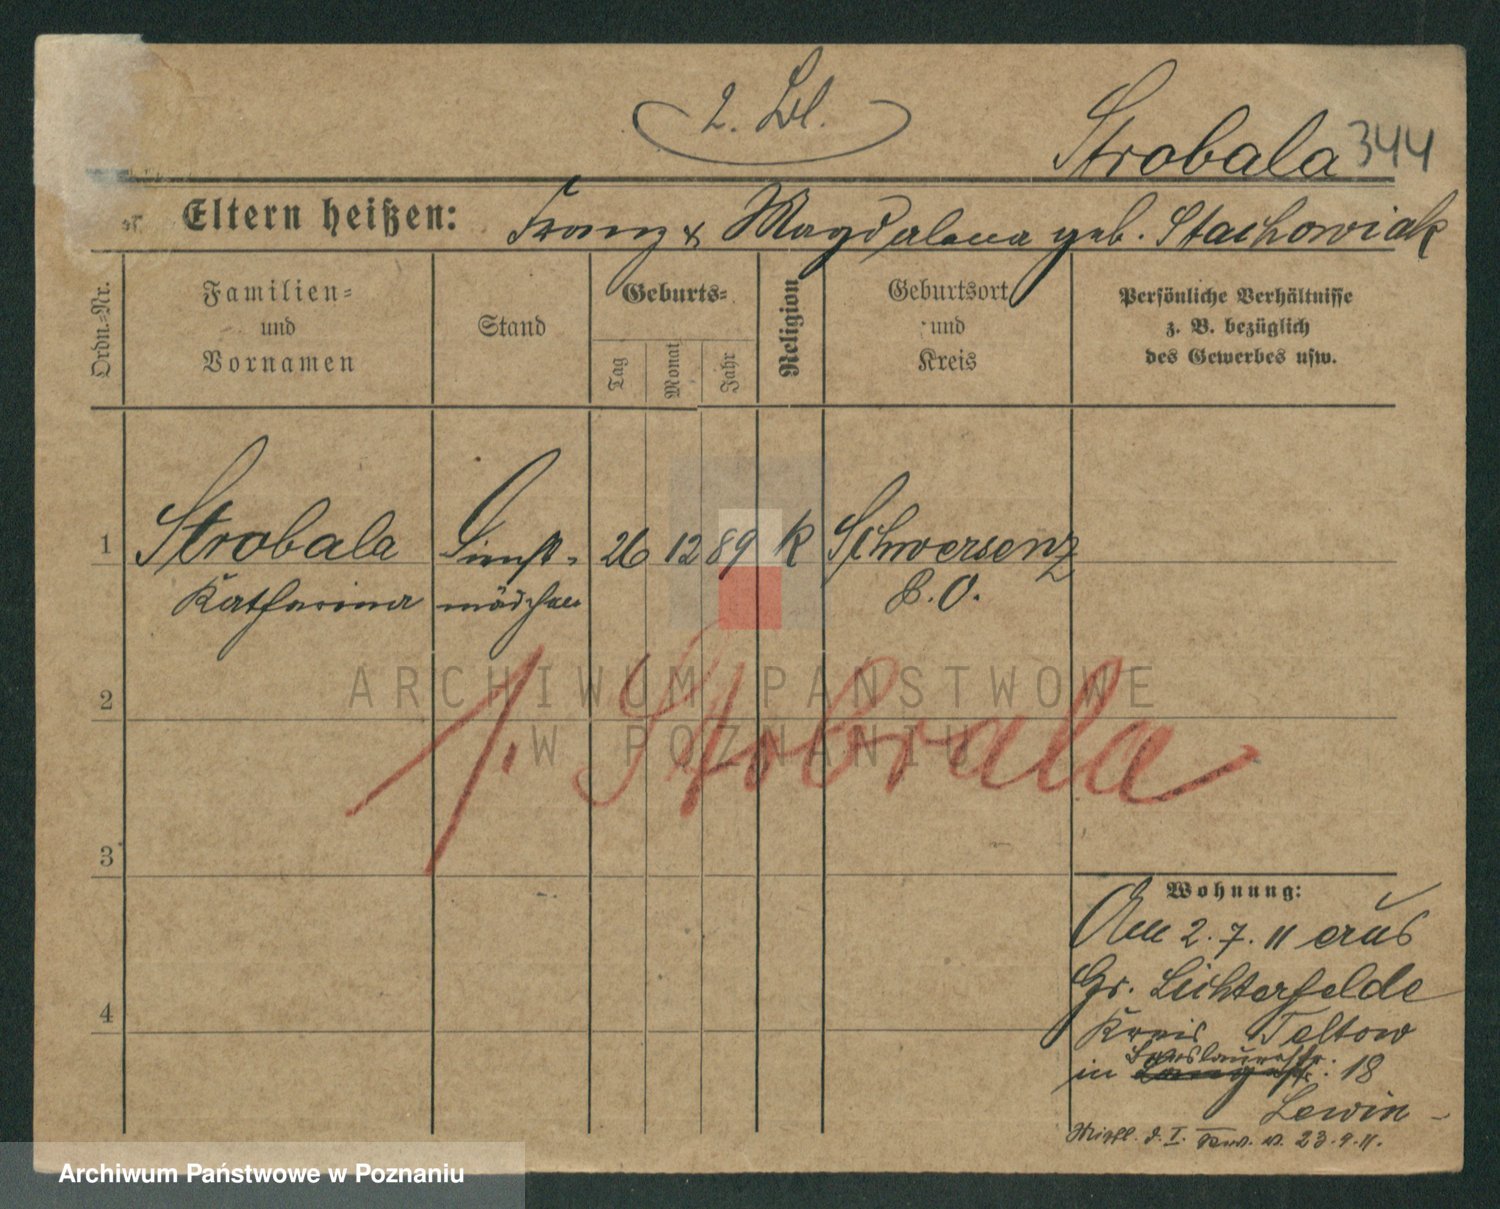 2. Bl.
Strobala 344
Eltern heißen: Franz & Magdalena geb. Stachowiak
Ordn.-Nr.
Familien-
und
Vornamen
Stand
Geburts-
Tag
Monat
Jahr
Religion
Geburtsort
und
Kreis
Persönliche Verhältnisse
z. B. bezüglich
des Gewerbes usw.
1 Strobala Dienst- 26 12 89 k Schwersenz
Katharina mädchen P. O.
2
1. Strobala
3
4
Wohnung:
Am 2. 7. 11 aus
Gr. Lichterfelde
Kreis Teltow
Breslauerstr.
in 18
Lewin
d. I. v. 23.9.11.
ARCHIWUM PAŃSTWOWE
W POZNANIU
Archiwum Państwowe w Poznaniu